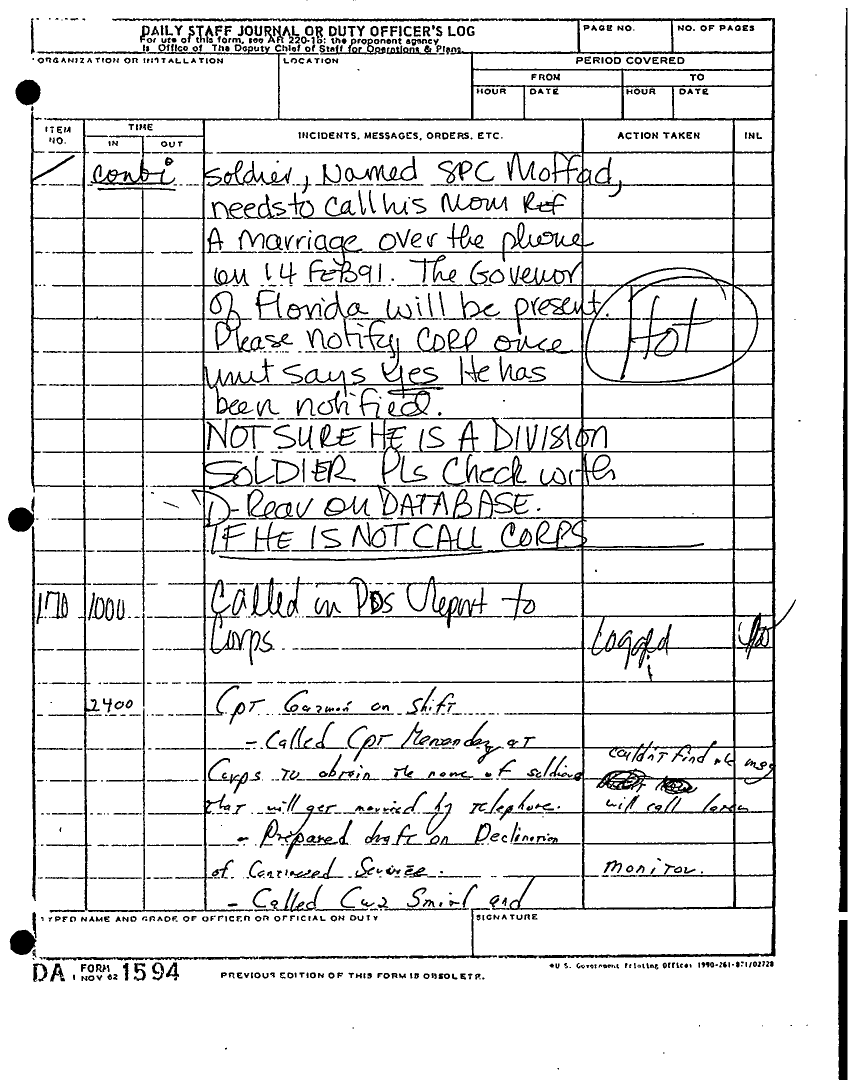 DAILY STAFF JOURNAL OR DUTY OFFICER'S LOG
For use of this form, see AR 220-15: the proponent agency
is Office of The Deputy Chief of Staff for Operations & Plans.
PAGE NO.
NO. OF PAGES
ORGANIZATION OR INSTALLATION
LOCATION
PERIOD COVERED
FROM
TO
HOUR
DATE
HOUR
DATE
ITEM NO.
TIME
IN
OUT
INCIDENTS, MESSAGES, ORDERS, ETC.
ACTION TAKEN
INL
soldier, Named SPC Moffad,
needs to call his Mom Ref
A marriage over the phone
on 14 FEB 91. The Govenor
of Florida will be present.
Hot
Please notify CORP once
unit says Yes He has
been notified.
NOT SURE HE IS A DIVISION
SOLDIER Pls Check with
D-Rear on DATABASE.
IF HE IS NOT CALL CORPS
170 1000 Called in Report to
Corps. Logged
2400 Cpt on shift
- Called Cpt at
couldn't find the msg
Corps to obtain the name of soldier
that will get married by telephone. will call later
- Prepared draft on Declination
of Continued Service. monitor.
- Called and
TYPED NAME AND GRADE OF OFFICER OR OFFICIAL ON DUTY
SIGNATURE
DA FORM 1 NOV 62 1594
PREVIOUS EDITION OF THIS FORM IS OBSOLETE.
U.S. Government Printing Office: 1990-261-871/02728